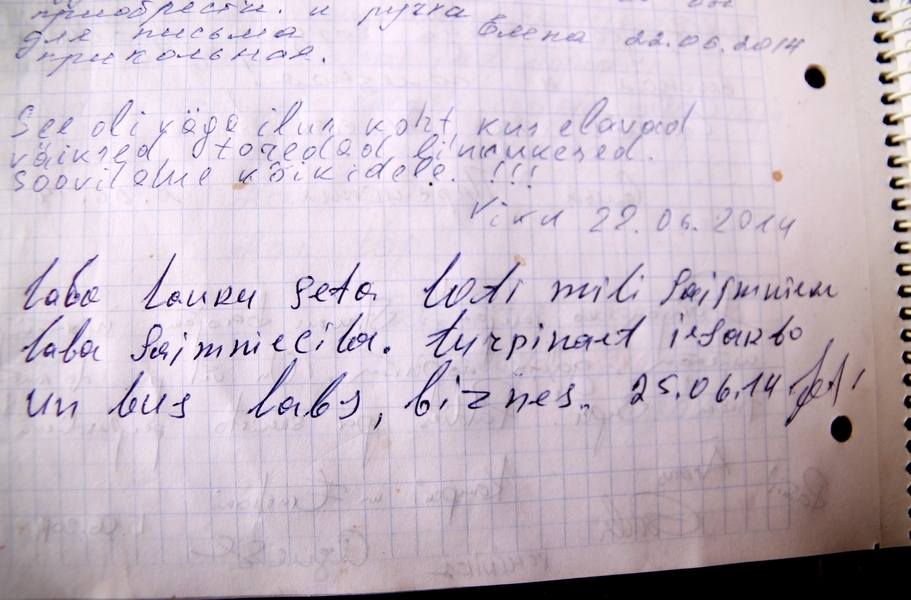 приобрести. и ручка
для письма Елена 22.06.2014
прикольная.
See oli väga ilun koht, kus elavad
väiksed toredad linnukesed.
Soovitame kõikidele. !!!
Vika 22.06.2014
laba lauku seta loti mili saijmnieku
laba saimniecila. turpinaet iesarbo
un bus labs, biznes. 25.06.14